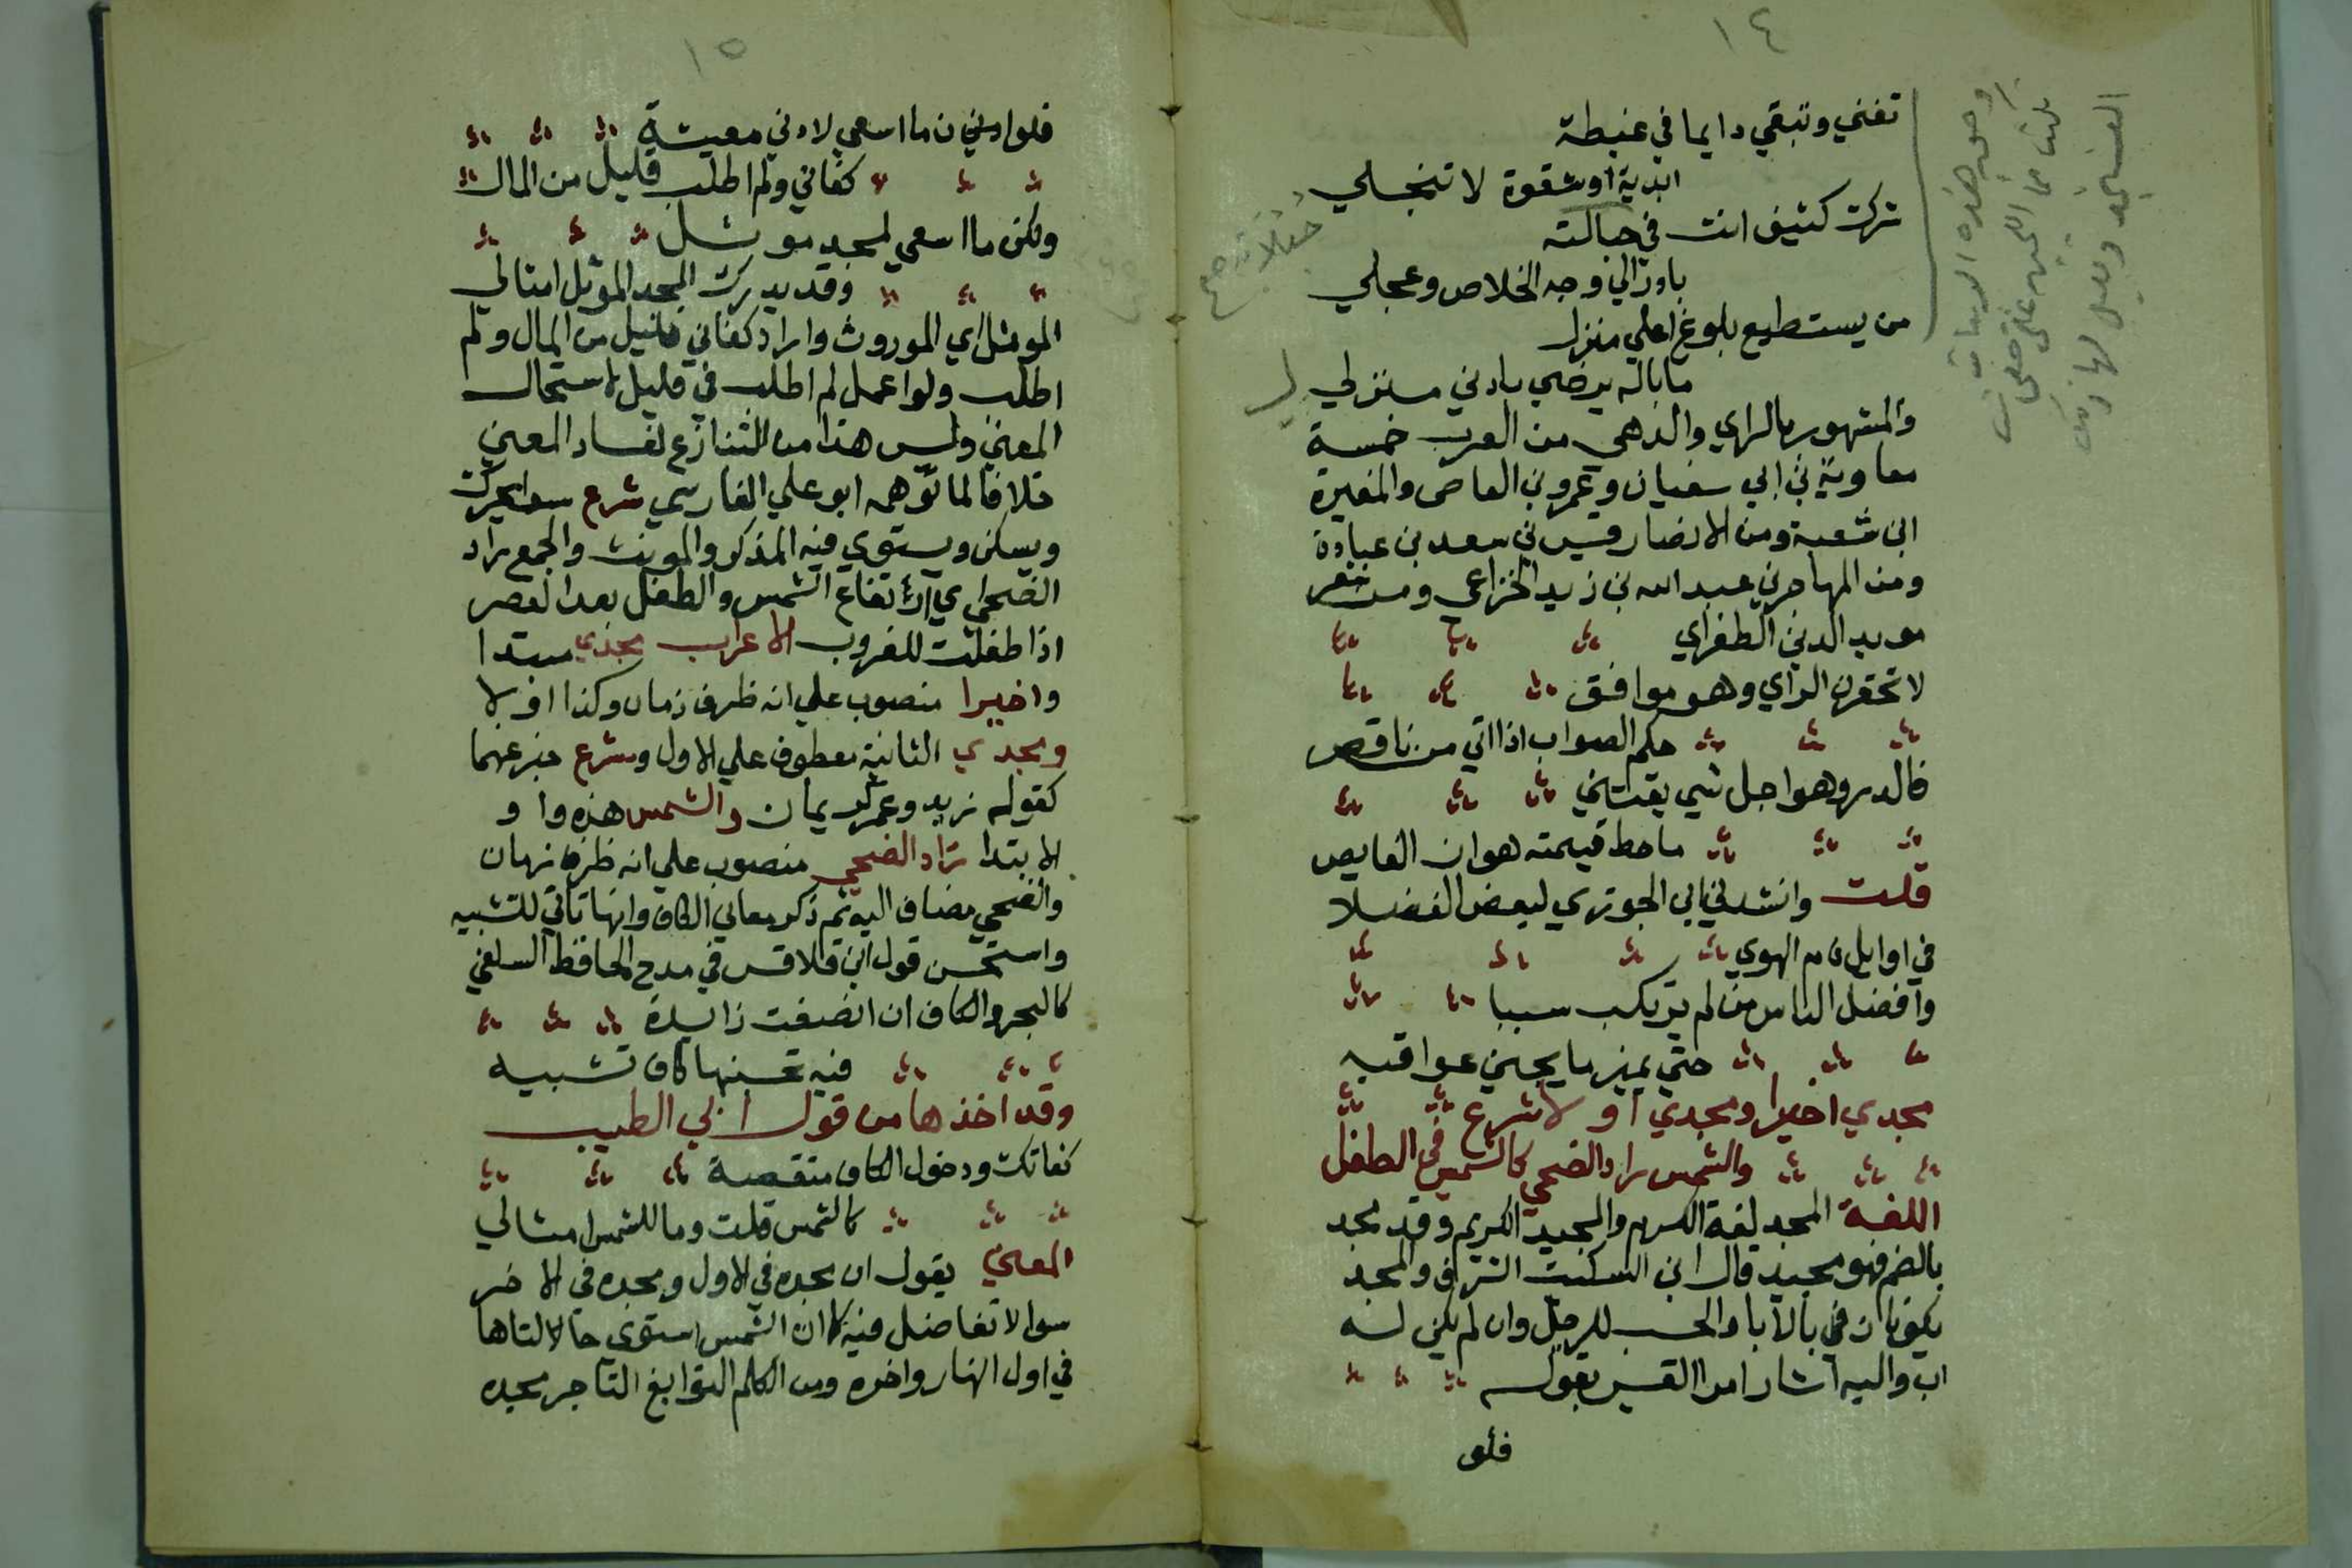 ١٤
تفني وتبقي دايما في غبطة
ابدية او شقوة لا تنجلي
شركـ كثيف انت في حبالته
خبالاته صح
باوز الي وجه الخلاص وعجلي
من يستطيع بلوغ اعلي منزل
ما باله يرضي بادني منزلي
والمشهور بالراي والدهي من العرب خمسة
معاوية بن ابي سفيان وعمرو بن العاص والمغيرة
ابن شعبة ومن الانصار قيس بن سعد بن عبادة
ومن المهاجرين عبد الله بن زيد الخزاعي ومن شعر
مويد الدين الطغراي
لا تحقرن الراي وهو موافق
حكم الصواب اذا اتي من ناقص
فالدر وهو اجل شي يقتني
ما حط قيمته هوان الغايص
قلت وانشدني ابي الجوزي لبعض الفضلا
في اوايل ذم الهوي
وافضل الناس من لم يرتكب سببا
حتي يميز ما يجني عواقبه
مجدي اخيرا ومجدي اولا شرع
والشمس راد الضحي كالشمس في الطفل
اللغة المجد لغة الكرم والمجيد الكريم وقد مجد
بالضم فهو مجيد قال ابن السكيت الشرف والمجد
يكونان في بالابا والحسب للرجل وان لم يكن له
اب واليه اشار امرا القيس بقوله
فلو
١٥
فلو انني ن ما اسعي لادني معيشة
كفاني ولم اطلب قليل من المال
ولكن ما اسعي لمجد موثل
وقد يدركـ المجد الموثل امثالي
الموثل اي الموروث واراد كفاني قليل من المال ولم
اطلب ولو اعمل لم اطلب في قليل لاستحال
المعني وليس هذا من التنازع لفساد المعني
خلافا لما توهمه ابو علي الفارسي شرع سوا يحرك
ويسكن ويستوي فيه المذكر والمونث والجمع راد
الضحي اي ارتفاع الشمس والطفل بعد العصر
اذا طفلت للغروب الاعراب مجدي مبتدا
واخيرا منصوب علي انه ظرف زمان وكذا اولا
ومجدي الثانية معطوف علي الاول وشرع خبر عنهما
كقوله زيد وعمر كريمان والشمس هذه واو
الابتدا راد الضحي منصوب علي انه ظرف زمان
والضحي مضاف اليه ثم ذكر معاني الكاف وانها تاتي للتشبيه
واستحسن قول ابن قلاقس في مدح الحافظ السلفي
كالبحر والكاف ان انصفت زايدة
فيه تحسبنها كاف تشبيه
وقد اخذها من قول ابي الطيب
كفاتك ودخول الكاف منقصة
كالشمس قلت وما للشمس امثالي
المعني يقول ان مجده في الاول ومجده في الاخر
سوا لا تفاضل فيه كما ان الشمس استوي حالالتاها
في اول النهار واخره ومن الكلم النوابغ التاجر مجده